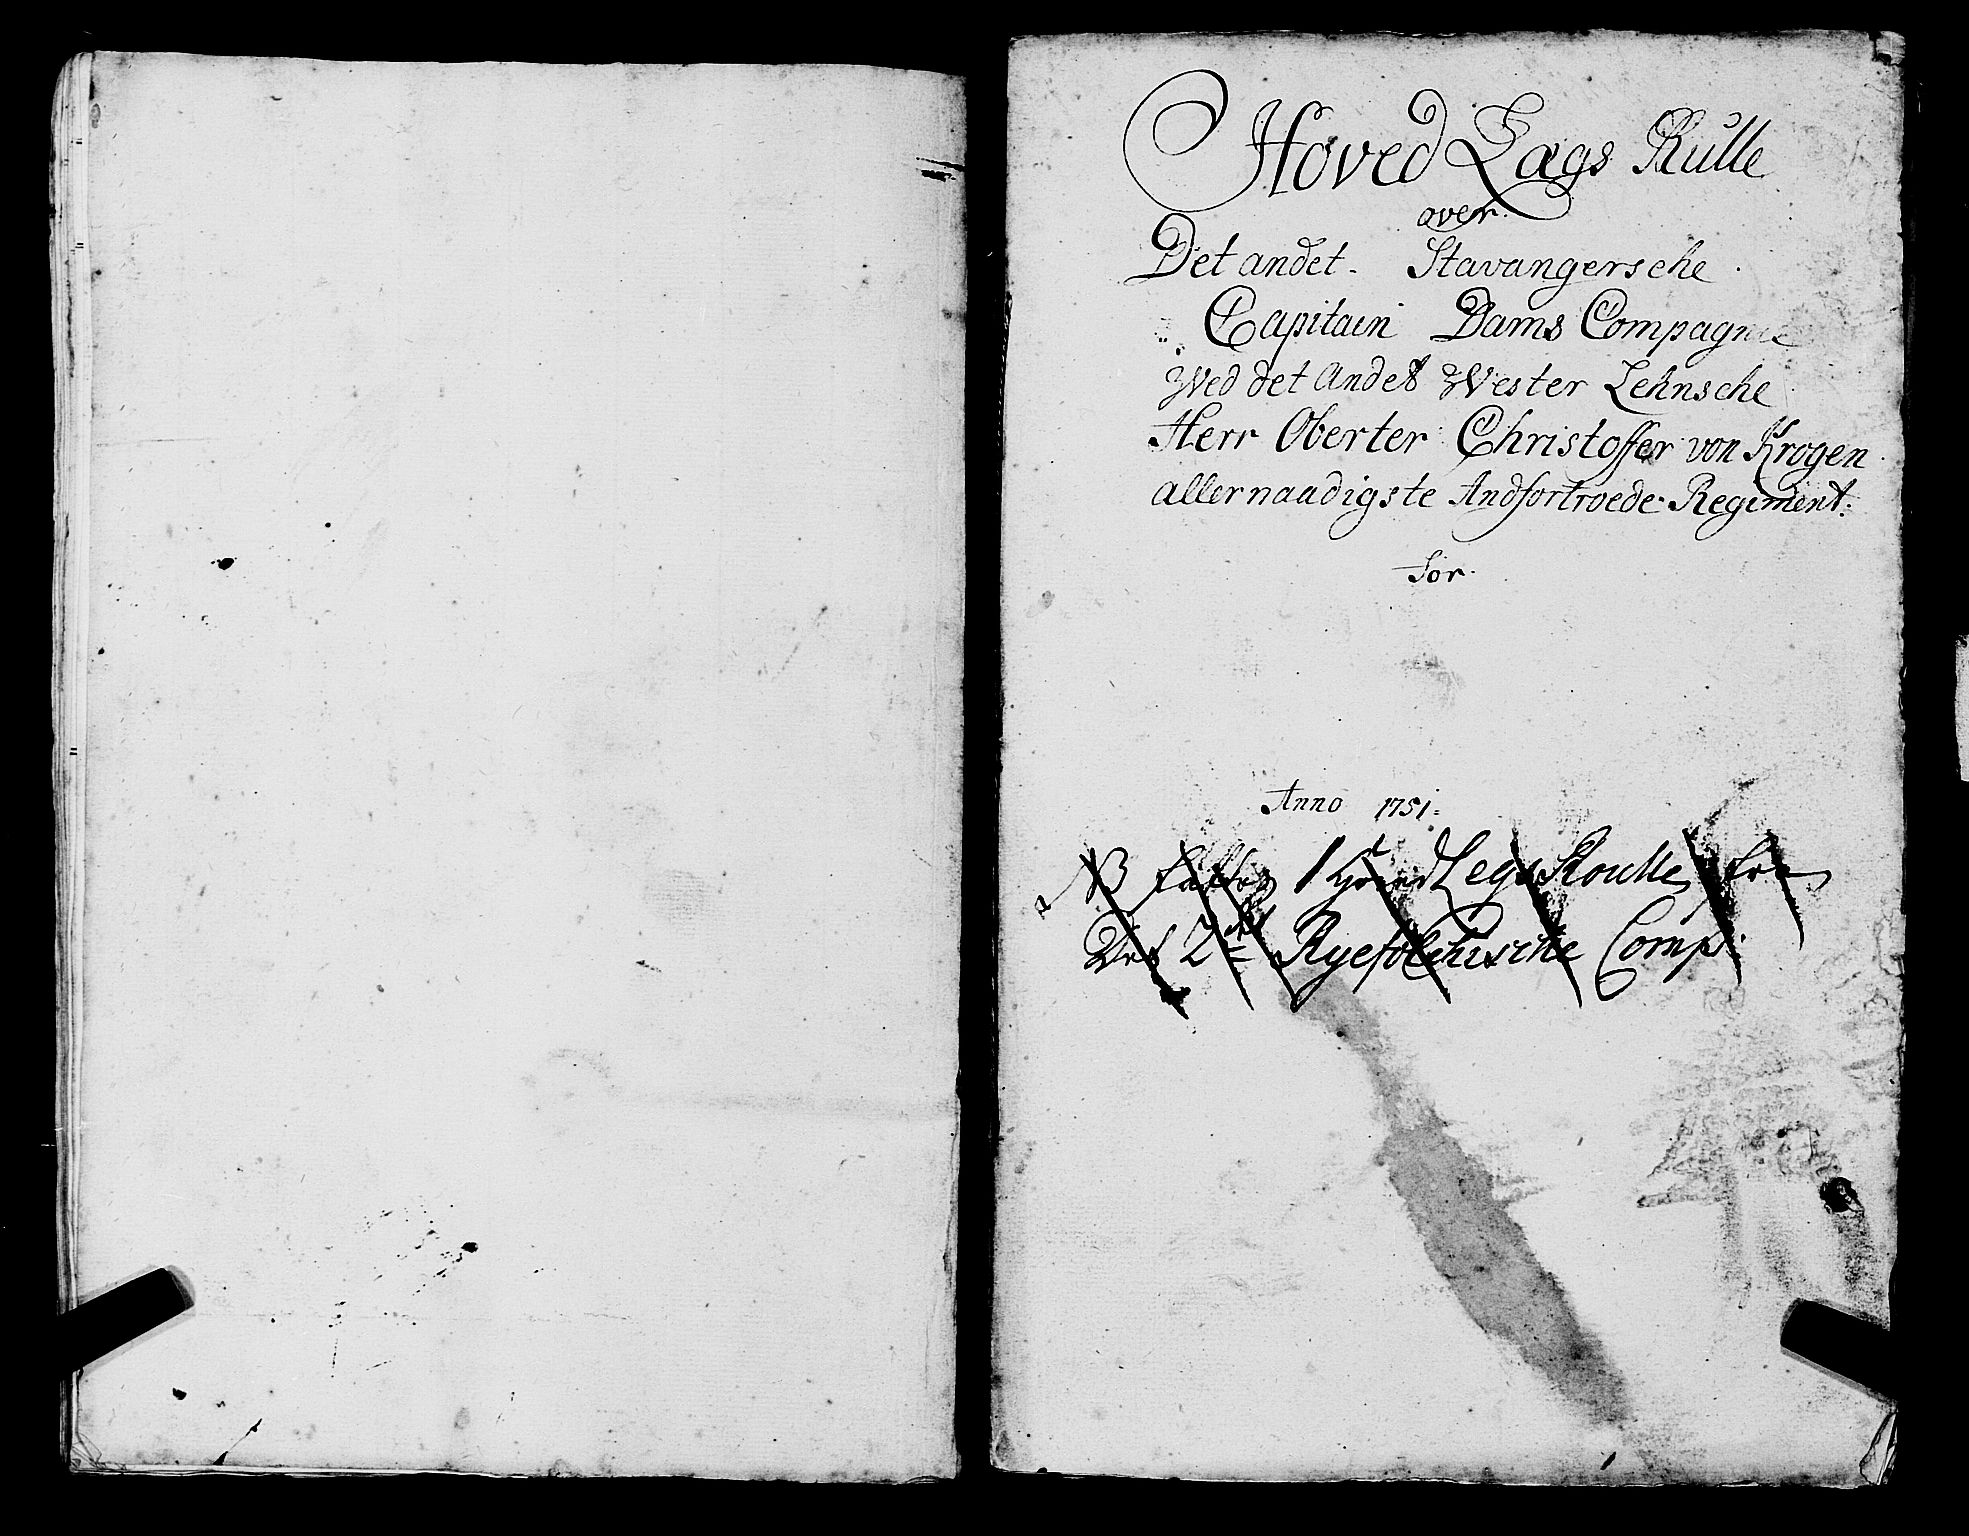 Hoved Lægs Rulle
over.
Det andet. Stavangersche
Capitain Dams Compagnie
Ved det Andet Vester Lehnsche
Herr Oberter Christoffer von Krogen
allernaadigste Andfortroede Regiment:
for.
Anno 1751:
NB fattes 1 Hoved Legs Roulle fra
Det 2det Ryefolchische Comp: